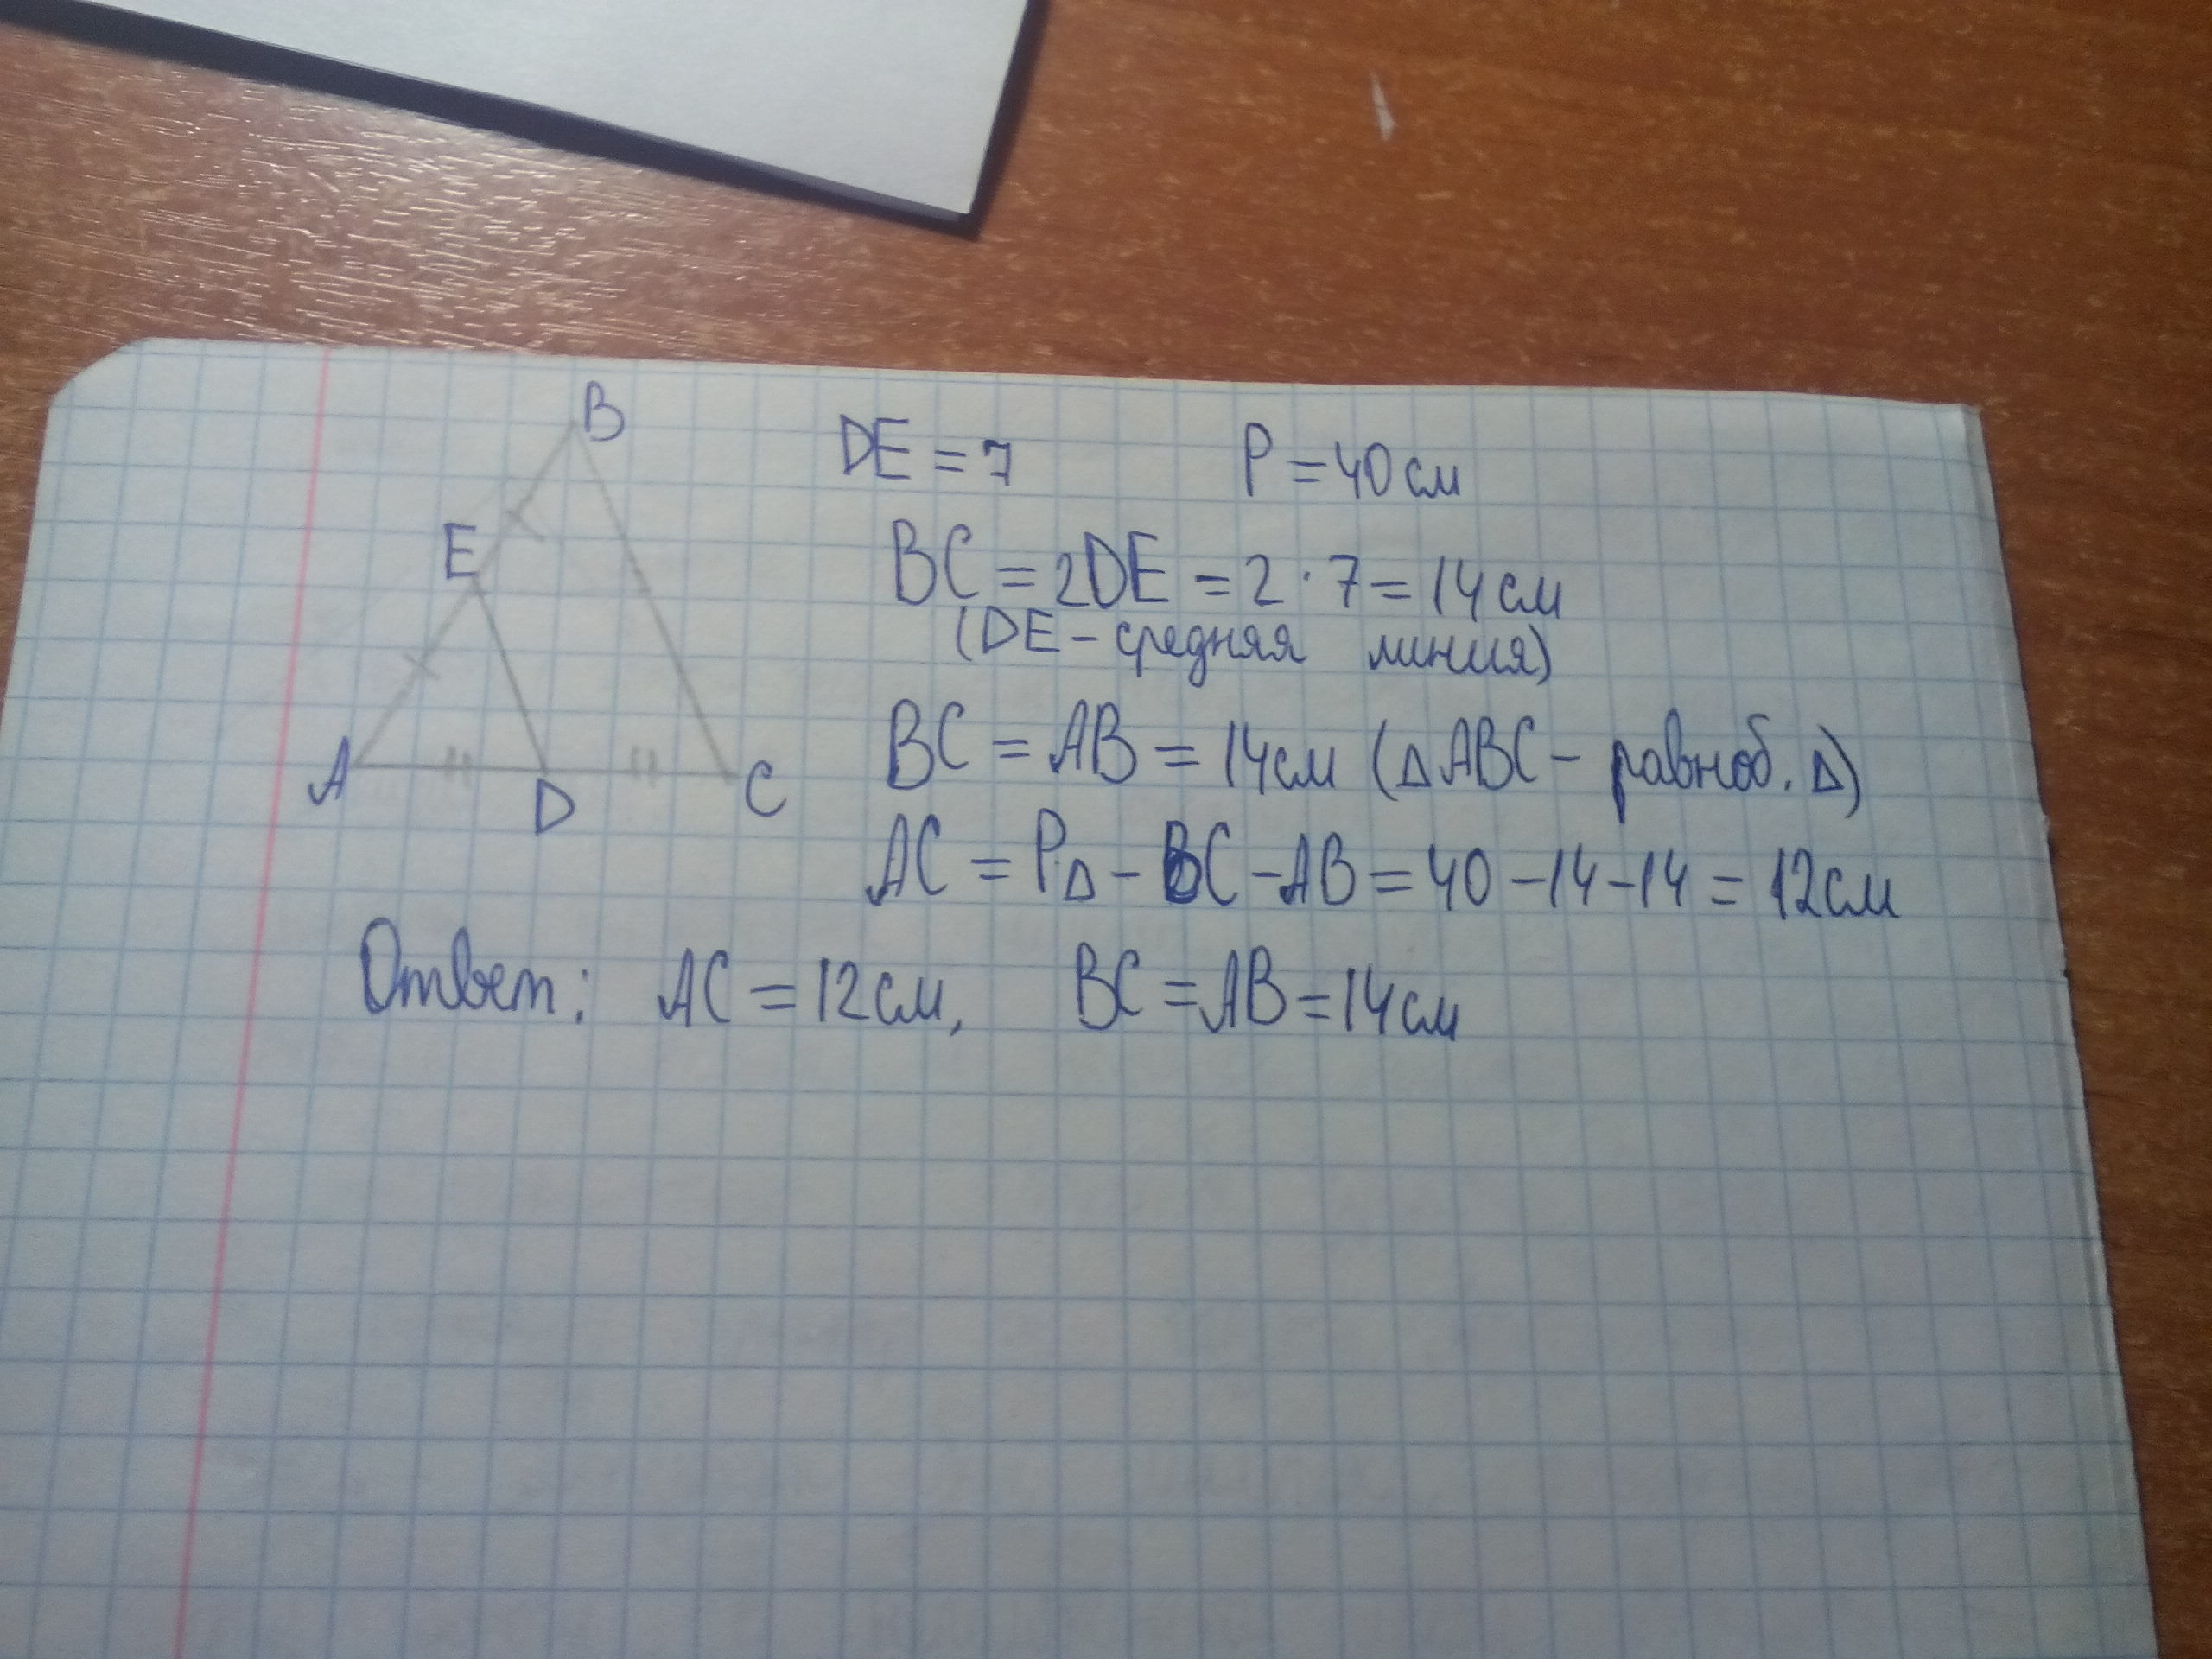 B
E
A
D
C
DE = 7 P = 40 см
BC = 2DE = 2 · 7 = 14 см
(DE – средняя линия)
BC = AB = 14 см (△ABC – равноб. △)
AC = P△ – BC – AB = 40 – 14 – 14 = 12 см
Ответ: AC = 12 см, BC = AB = 14 см